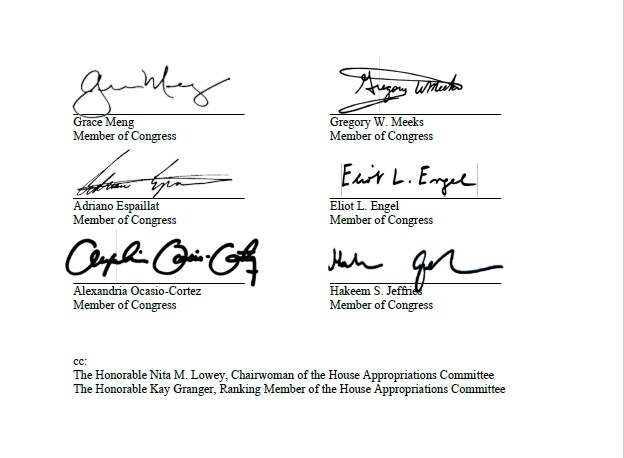 Grace Meng
Gregory W Meeks
Grace Meng
Member of Congress
Gregory W. Meeks
Member of Congress
Eliot L. Engel
Adriano Espaillat
Member of Congress
Eliot L. Engel
Member of Congress
Alexandria Ocasio-Cortez
Member of Congress
Hakeem S. Jeffries
Member of Congress
cc:
The Honorable Nita M. Lowey, Chairwoman of the House Appropriations Committee
The Honorable Kay Granger, Ranking Member of the House Appropriations Committee